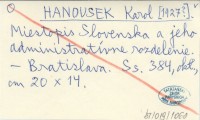 HANOUSEK Karol [1927?].
Miestopis Slovenska a jeho
administratívne rozdelenie.
— Bratislava. Ss. 384, okt,
cm 20 x 14.